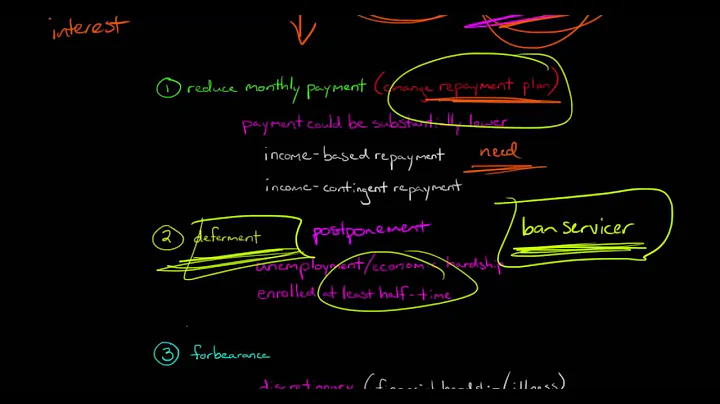 interest
① reduce monthly payment (change repayment plan)
payment could be substantially lower
income-based repayment need
income-contingent repayment
② deferment postponement loan servicer
unemployment/economic hardship
enrolled at least half-time
③ forbearance
discretionary (financial hardship/illness)